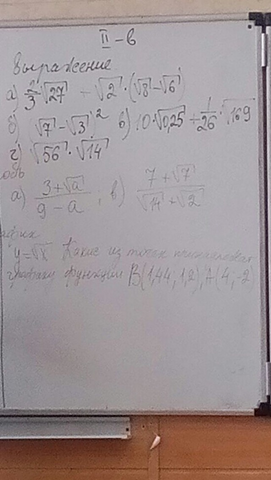 II-в
Выражение
а) 2/3 √27 - √2 · (√8 - √6)
б) (√7 - √3)² в) 10 · √0,25 + 1/26 · √169
г) √56 · √14
а) (3+√a)/(9-a) ; в) (7+√7)/(√14+√2)
y=√x Какие из точек принадлежат
графику функции В(1,44, 1,2), А(4, -2)